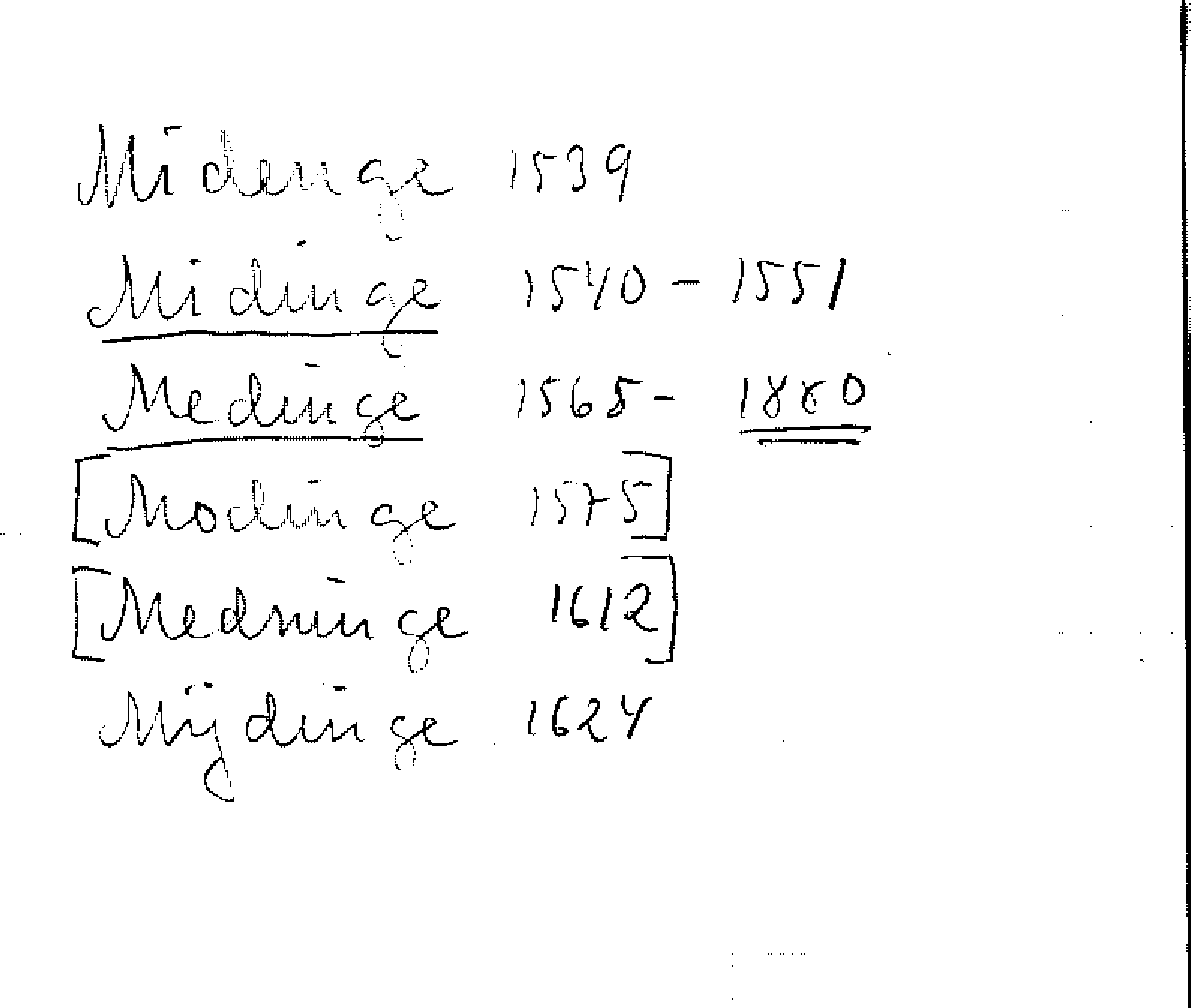 Midenge 1539
Midinge 1540 - 1551
Medinge 1565 - 1880
[Modinge 1575]
[Medninge 1612]
Mÿdinge 1624